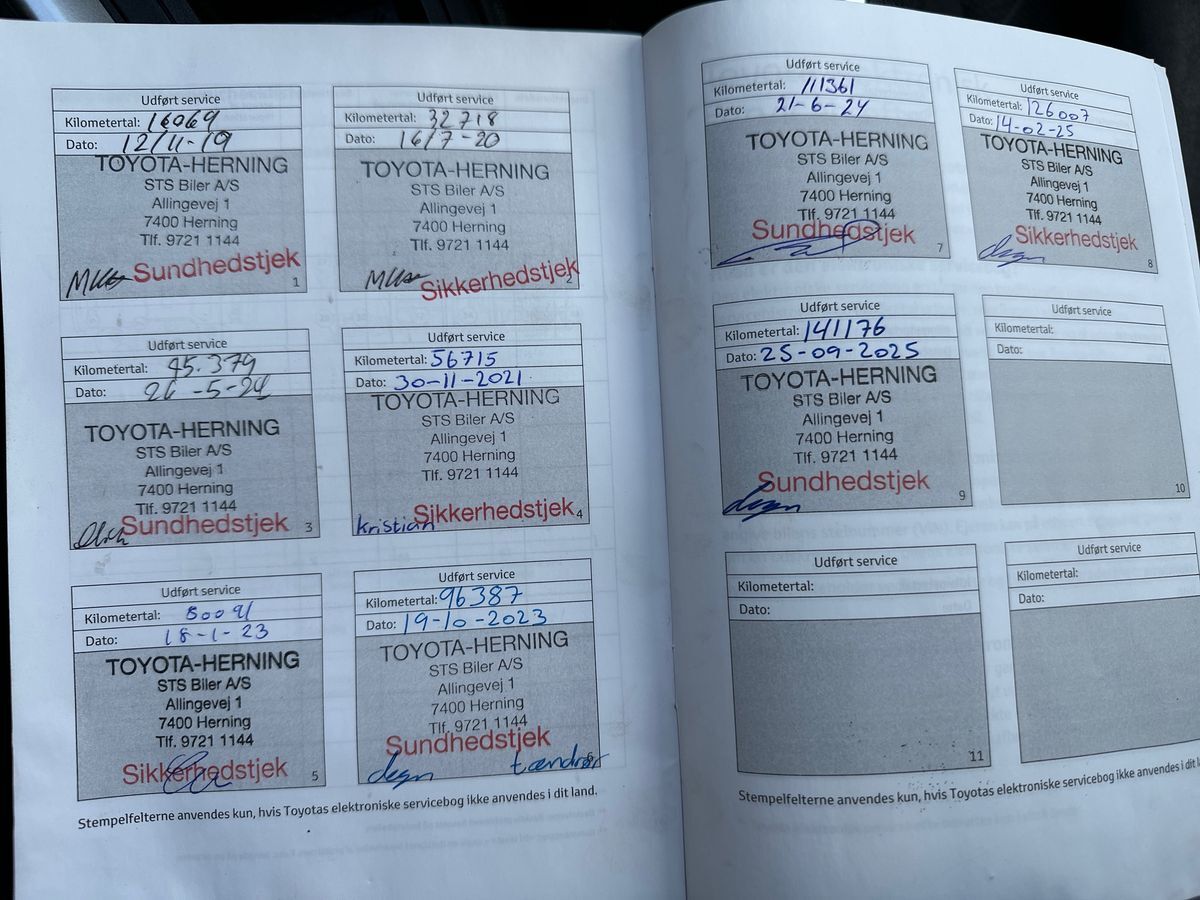 Udført service
Kilometertal: 16069
Dato: 12/11-19
TOYOTA-HERNING
STS Biler A/S
Allingevej 1
7400 Herning
Tlf. 9721 1144
Sundhedstjek
1
Udført service
Kilometertal: 32718
Dato: 16/7-20
TOYOTA-HERNING
STS Biler A/S
Allingevej 1
7400 Herning
Tlf. 9721 1144
Sikkerhedstjek
2
Udført service
Kilometertal: 45.379
Dato:
TOYOTA-HERNING
STS Biler A/S
Allingevej 1
7400 Herning
Tlf. 9721 1144
Sundhedstjek
3
Udført service
Kilometertal: 56715
Dato: 30-11-2021
TOYOTA-HERNING
STS Biler A/S
Allingevej 1
7400 Herning
Tlf. 9721 1144
Sikkerhedstjek
kristian
4
Udført service
Kilometertal: 80091
Dato: 18-1-23
TOYOTA-HERNING
STS Biler A/S
Allingevej 1
7400 Herning
Tlf. 9721 1144
Sikkerhedstjek
5
Udført service
Kilometertal: 96387
Dato: 19-10-2023
TOYOTA-HERNING
STS Biler A/S
Allingevej 1
7400 Herning
Tlf. 9721 1144
Sundhedstjek
degn tændrør
6
Stempelfelterne anvendes kun, hvis Toyotas elektroniske servicebog ikke anvendes i dit land.
Udført service
Kilometertal: 111361
Dato: 21-6-24
TOYOTA-HERNING
STS Biler A/S
Allingevej 1
7400 Herning
Tlf. 9721 1144
Sundhedstjek
7
Udført service
Kilometertal: 126007
Dato: 14-02-25
TOYOTA-HERNING
STS Biler A/S
Allingevej 1
7400 Herning
Tlf. 9721 1144
Sikkerhedstjek
degn
8
Udført service
Kilometertal: 141176
Dato: 25-09-2025
TOYOTA-HERNING
STS Biler A/S
Allingevej 1
7400 Herning
Tlf. 9721 1144
Sundhedstjek
degn
9
Udført service
Kilometertal:
Dato:
10
Udført service
Kilometertal:
Dato:
11
Udført service
Kilometertal:
Dato:
Stempelfelterne anvendes kun, hvis Toyotas elektroniske servicebog ikke anvendes i dit